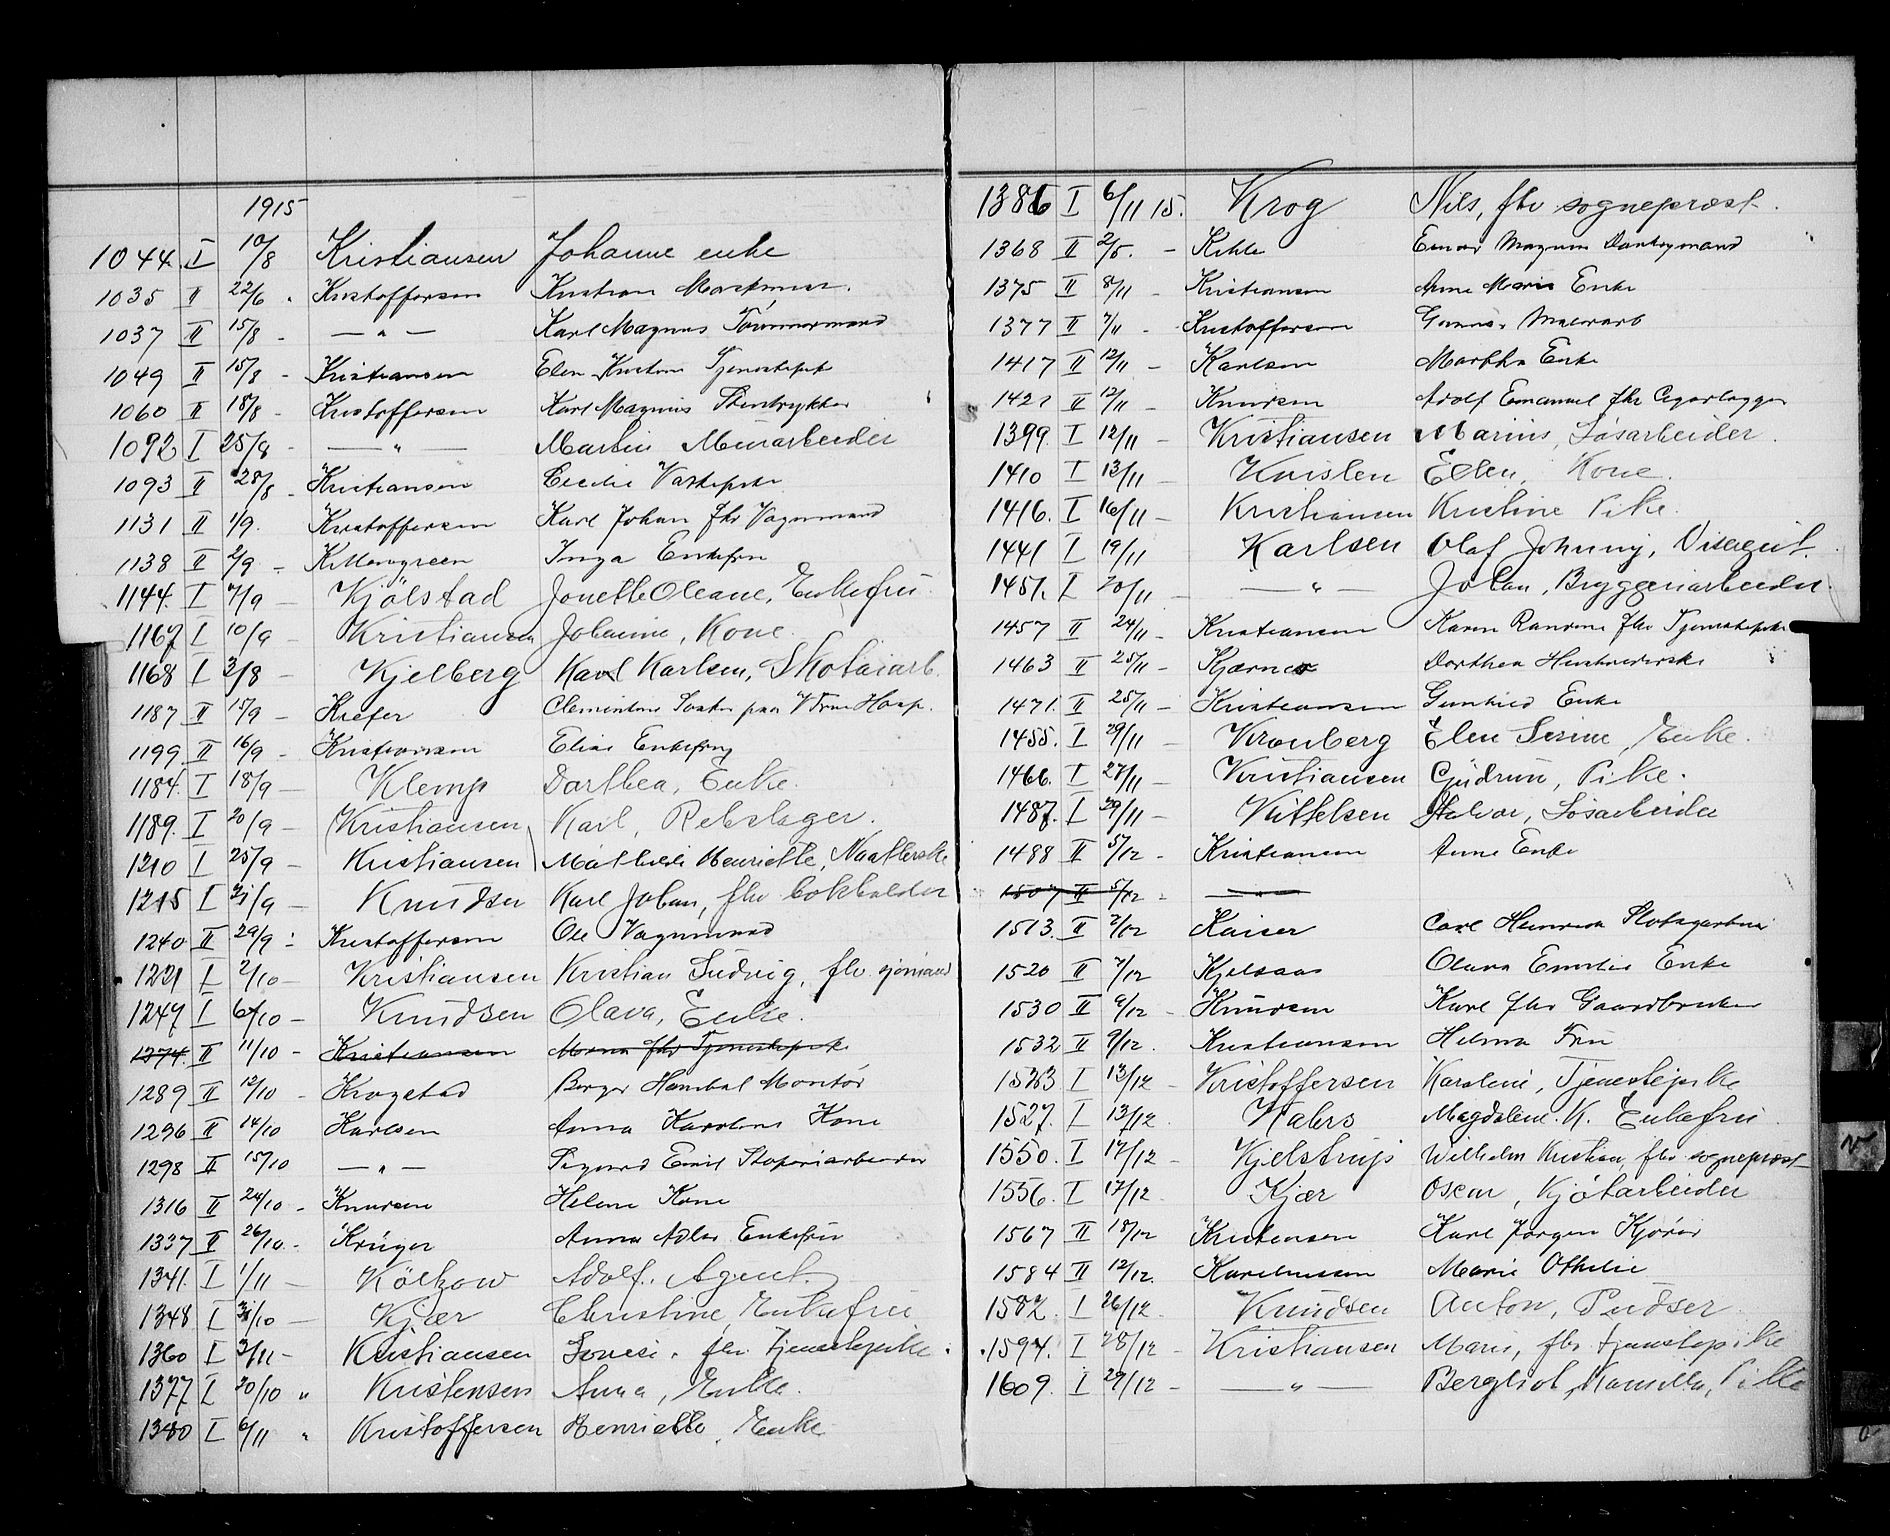 1915
1044. I 10/8 Kristiansen Johanne enke
1035 II 22/6 - Kristoffersen Kristian
1037 II 15/8 - — " — Karl Magnus Tömmermand
1049 II 15/8 - Kristiansen Elen Kristine Tjenestepike
1060 II 18/8 - Kristoffersen Karl Magnus Stentrykker
1092 I 25/8 - — " — Martin Murarbeider
1093 II 28/8 - Kristiansen Cecilie Vaskepike
1131 II 1/9. Kristoffersen Karl Johan fhv Vognmand
1138 II 2/9 - Inga Enkefru
1144. I 7/9 — Kjölstad Jonette Oleane, Enkefru
1167 I 10/9 - Kristiansen Johanne, Kone.
1168 I 3/8 - Kjelberg Karl Karlsen, Skotøiarb.
1187 II 15/9 - Kiefer Clementine paa V Frue Hosp.
1199 II 16/9 - Kristiansen Elise Enkefru
1184. I 18/9 — Klemp Dorthea, Enke.
1189. I 20/9 — Kristiansen Karl, Rebslager.
1210 I 25/9 - Kristiansen Mathilde Henriette,
1215 I 21/9 — Knudsen Karl Johan, fhv bokholder
1240 II 29/9 - Kristoffersen Ole Vognmand
1221 I 2/10 — Kristiansen Kristian Ludvig, fhv. sjömand
1247 I 6/10 — Knudsen Olava, Enke.
1274. II 11/10 - Kristiansen fhv Tjenestepike
1289 II 12/10 - Krogstad Birger Hanibal Montör
1296 II 14/10 Karlsen Anna Karoline Kone
1298 II 15/10 — " — Sigurd Emil Stoperiarbeider
1316 II 24/10 - Knudsen Helene Kone
1337 II 26/10. - Krüger Anna Adler Enkefru
1341. I 1/11 — Kölzow Adolf. Agent.
1348 I 31/10 — Kjær Christine, Enkefru
1360 I 3/11 - Kristiansen Lovise. fhv. tjenestepike.
1377 I 20/10 " Kristensen Anna, Enke.
1380 I 6/11 " Kristoffersen Henriette, Enke
1386 I 6/11 15. Krog Nils, fhv sogneprest.
1368 II 2/5. - Einar Magnus
1375 II 8/11 - Kristiansen Anne Marie Enke
1377 II 7/11 - Kristoffersen Malerarb
1417 II 12/11 - Karlsen Martha Enke
1421 II 12/11 - Knudsen Adolf Emanuel fhv
1399. I 12/11 - Kristiansen Marius, Løsarbeider.
1410 I 13/11 - Ellen, Kone.
1416. I 16/11 - Kristiansen Kristine Pike.
1441 I 19/11 Karlsen Olaf Johnny,
1451. I 20/11 — " — Johan, Bryggeriarbeider.
1457 II 24/11 - Kristiansen Karen Randine fhv Tjenestepike
1463 II 25/11 - Kjærnes Dorthea
1471. II 25/11 - Kristiansen Gunhild Enke
1455. I 29/11 - Kronberg Elen Sesine, Enke.
1466. I 27/11 - Kristiansen Gudrun, Pike.
1487. I 29/11 - Kittelsen Halvor, Løsarbeider
1488 II 5/12 - Kristiansen Anne Enke
1507 II 5/12 - — " —
1513. II 7/12 Kaiser Carl Heinrich Slotsgartner
1520 II 7/12 Kjelsaas Olava Emilie Enke
1530 II 9/12 - Knudsen Karl fhv Gaardbruker
1532 II 9/12. Kristiansen Helma Fru
1523 I 13/12 - Kristoffersen Karoline, Tjenestepike
1527. I 13/12. Kabers Magdalene. K. Enkefru
1550. I 17/12 - Kjelstrup Wilhelm Kristian, fhv sogneprest
1556. I 17/12. Kjær Oscar, Kjötarbeider
1567 II 18/12 Kristensen Karl Jörgen Kjörer
1584 II 12/12. Marie Othelie
1582. I 26/12. Knudsen Anton, Pudser
1594. I 28/12 - Kristiansen Marie, fhv tjenestepike
1609. I 29/12 - — " — Bergliot, Kamilla, Pike